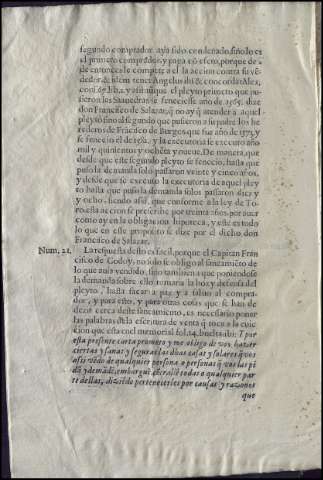 segundo comprador aya sido condenado, sino lo es
el primero comprador, y paga cõ efeto, porque de s
de entonces le compete a el la accion contra su vē-
dedor, & idem tenet Angelus ibi & concordat Alex.
y assi aũque el pleyto primero que pu-
sieron los Saauedras se feneciesse año de 1565. dize
don Francisco de Salazar, q̃ no ay q̃ atender a aquel
pleyto sino al segundo que pusieron a su padre los he
rederos de Frãcisco de Burgos que fue año de 1573. y
se fenecio el de 1582. y la executoria se executo año
mil y quinientos y ochẽta y nueue. De manera, que
desde que este segundo pleyto se fenecio, hasta que
puso la demanda solo passaron veinte y cinco años,
y desde que se executo la executoria de aquel pley
to hasta que puso la demanda solos passaron diez y
y ocho, siendo assi, que conforme a la ley de To-
ro esta accion se prescribe por treinta años por auer
como ay en la obligacion hipoteca, y este es todo
lo que en este proposito se dize por el dicho don
Francisco de Salazar.
Num. 21. La respuesta desto es facil, porque el Capitan Fran
cisco de Godoy, no solo se obligò al saneamiẽto de
lo que auia vendido, sino tambien a que poniendose
la demanda sobre ello tomaria la boz y defensa del
pleyto, hasta sacar a paz y a saluo al compra-
dor, y para esto, y para otras cosas que se han de
dezir cerca deste saneamiento, es necessario poner
las palabras de la escritura de venta q̃ toca a la euic-
cion que esta en el memorial fol. 14. buelta ibi: Y por
esta presente carta prometo y me obligo de vos hazer
ciertas y sanas y seguras las dichas casas y solares q̃ vos
assi vẽdo de qualquier persona o personas q̃ vos las pi
dã y demãdẽ, embarguẽ, o cõtrallẽ todas o qualquier par
te dellas, diziẽdo pertenecerles por causas y razones
que